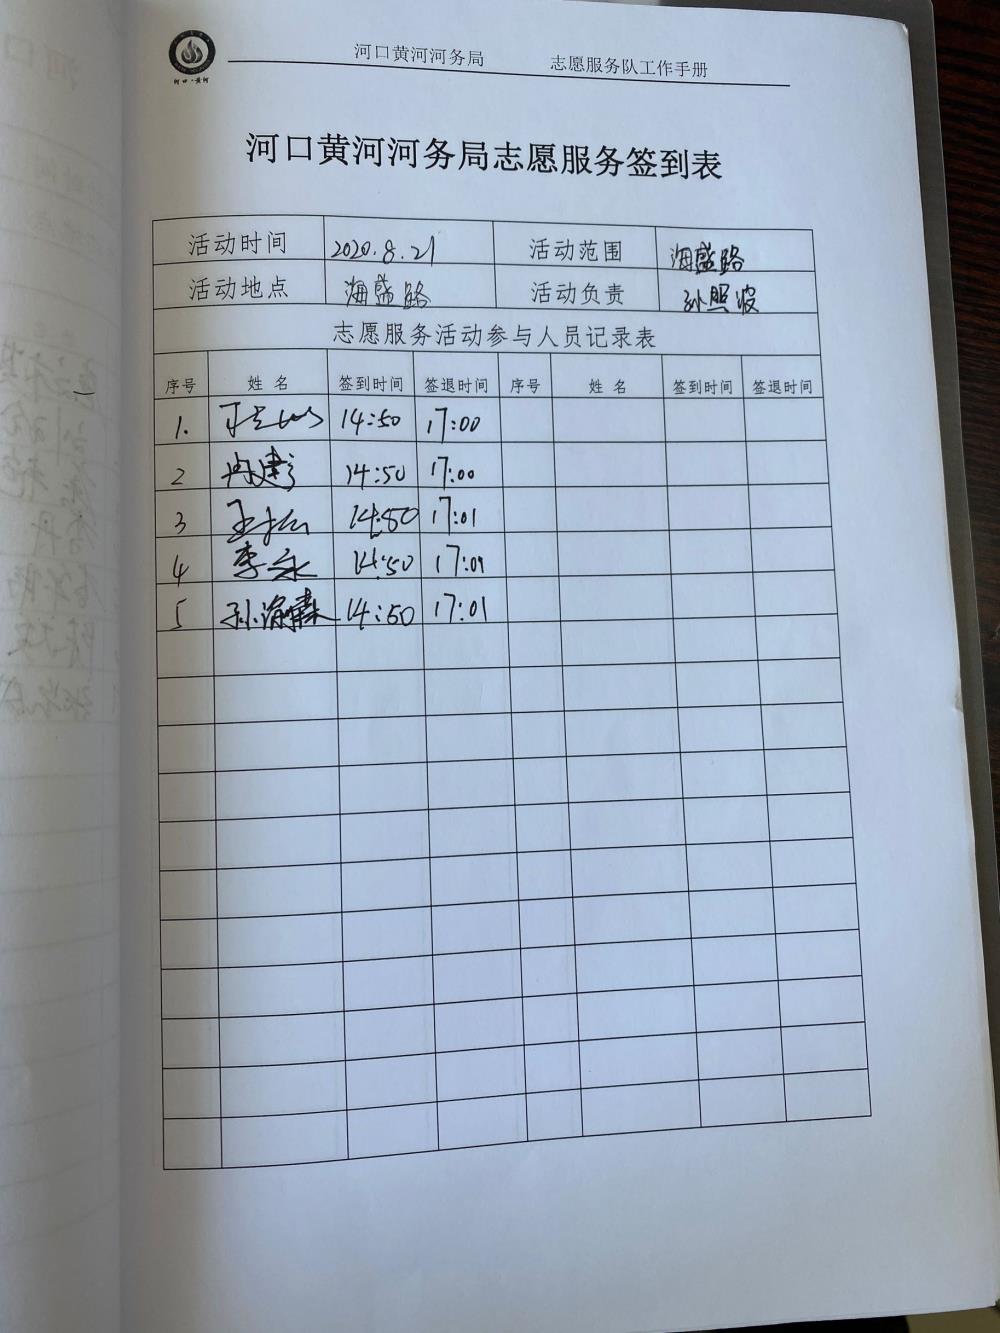 河口·黄河
河口黄河河务局 志愿服务队工作手册
河口黄河河务局志愿服务签到表
活动时间 2020.8.21 活动范围 海盛路
活动地点 海盛路 活动负责 孙照波
志愿服务活动参与人员记录表
序号 姓名 签到时间 签退时间 序号 姓名 签到时间 签退时间
1. 14:50 17:00
2 14:50 17:00
3 14:50 17:01
4 李永 14:50 17:01
5 孙海霖 14:50 17:01